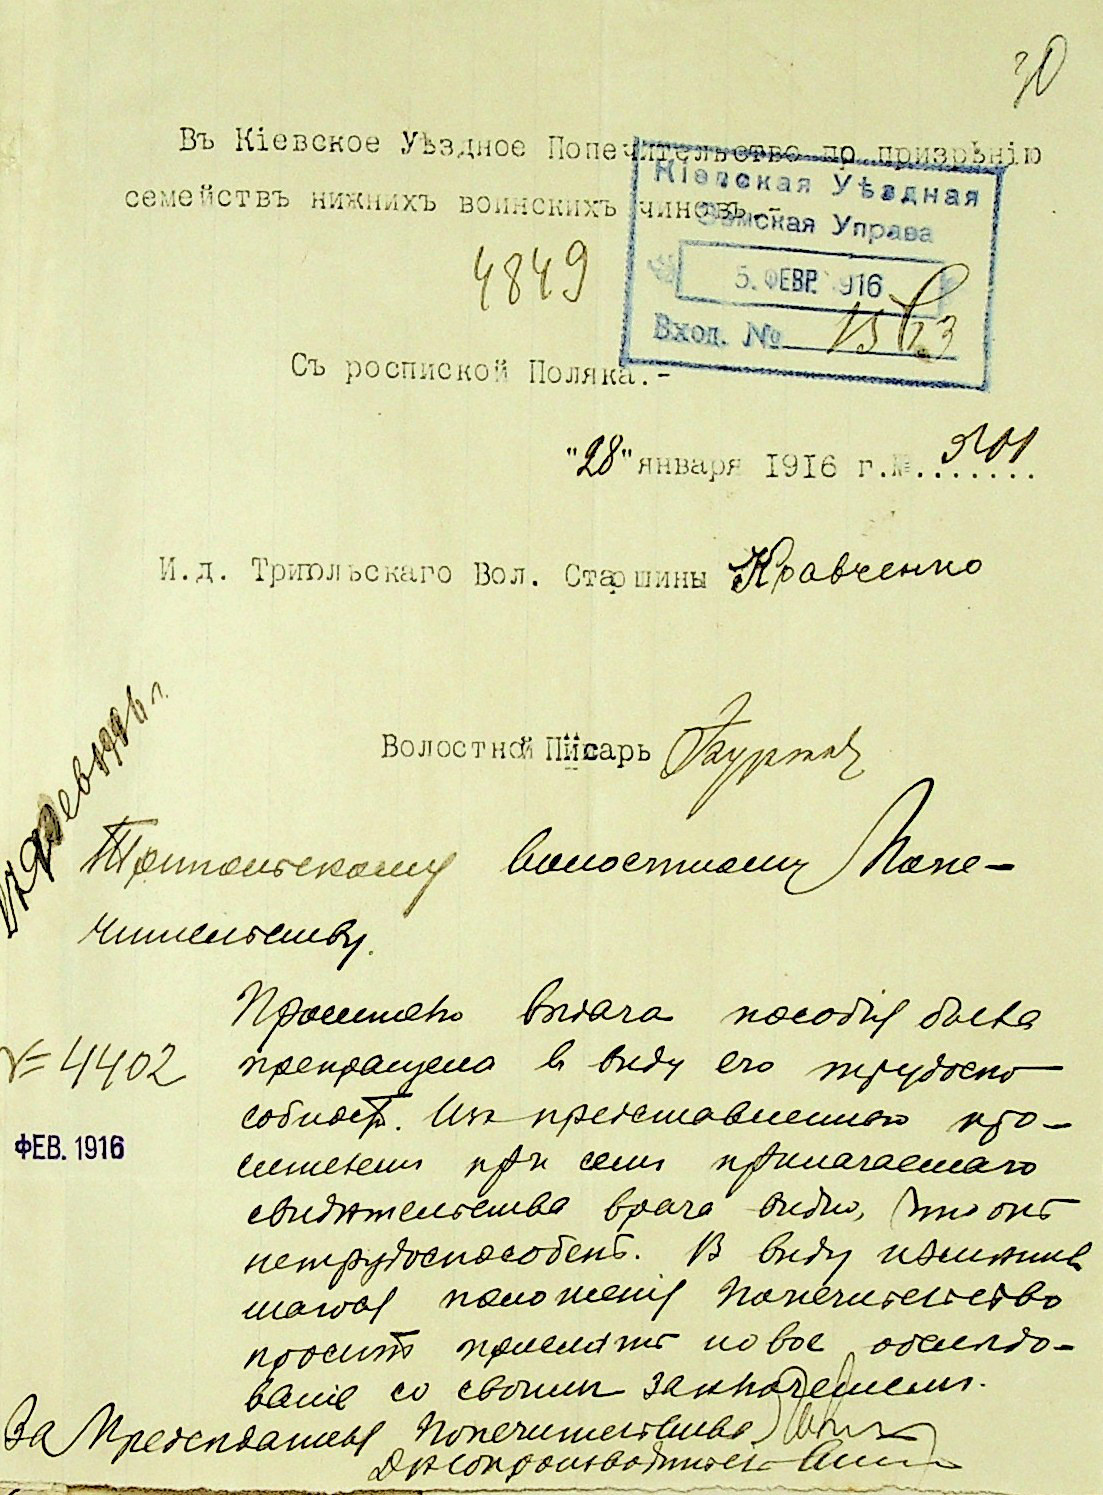 30
Въ Кіевское Уѣздное Попечительство по призрѣнію
семействъ нижнихъ воинскихъ чиновъ.-
Кіевская Уѣздная
Земская Управа
5. ФЕВР 1916
Вход. №
4849
Съ роспиской Поляка.-
"28" января 1916 г.№.......
И.д. Трипольскаго Вол. Старшины Кравченко
Волостной Писарь
Трипольскому волостному Попе-
чительству.
Прошенію выдача пособія была
№ 4402
прекращена в виду его трудоспо
ФЕВ. 1916
собности. Изъ представленнаго про-
сителемъ при семъ прилагаемаго
свидѣтельства врача видно, что онъ
нетрудоспособенъ. В виду измѣнив
шагося положенія Попечительство
проситъ прислать новое обслѣдо-
ваніе со своимъ заключеніемъ.
За Предсѣдателя Попечительства
Дѣлопроизводитель